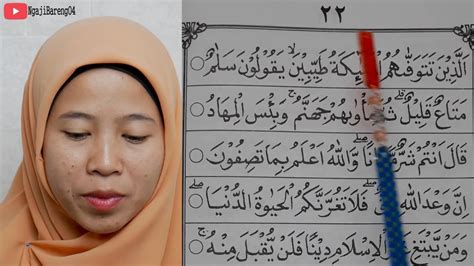 NgajiBareng04
٢٢
اَلَّذِيْنَ تَتَوَفّٰىهُمُ طَيِّبِيْنَ ۙ يَقُوْلُوْنَ سَلٰمٌ
مَتَاعٌ قَلِيْلٌ ۗ جَهَنَّمُ ۗ وَبِئْسَ الْمِهَادُ
قَالَ اَنْتُمْ شَرٌّ وَاللّٰهُ اَعْلَمُ بِمَا تَصِفُوْنَ
اِنَّ وَعْدَ اللّٰهِ فَلَا تَغُرَّنَّكُمُ الْحَيٰوةُ الدُّنْيَا ۗ
وَمَنْ يَّبْتَغِ الْاِسْلَامِ دِيْنًا فَلَنْ يُّقْبَلَ مِنْهُ ۚ